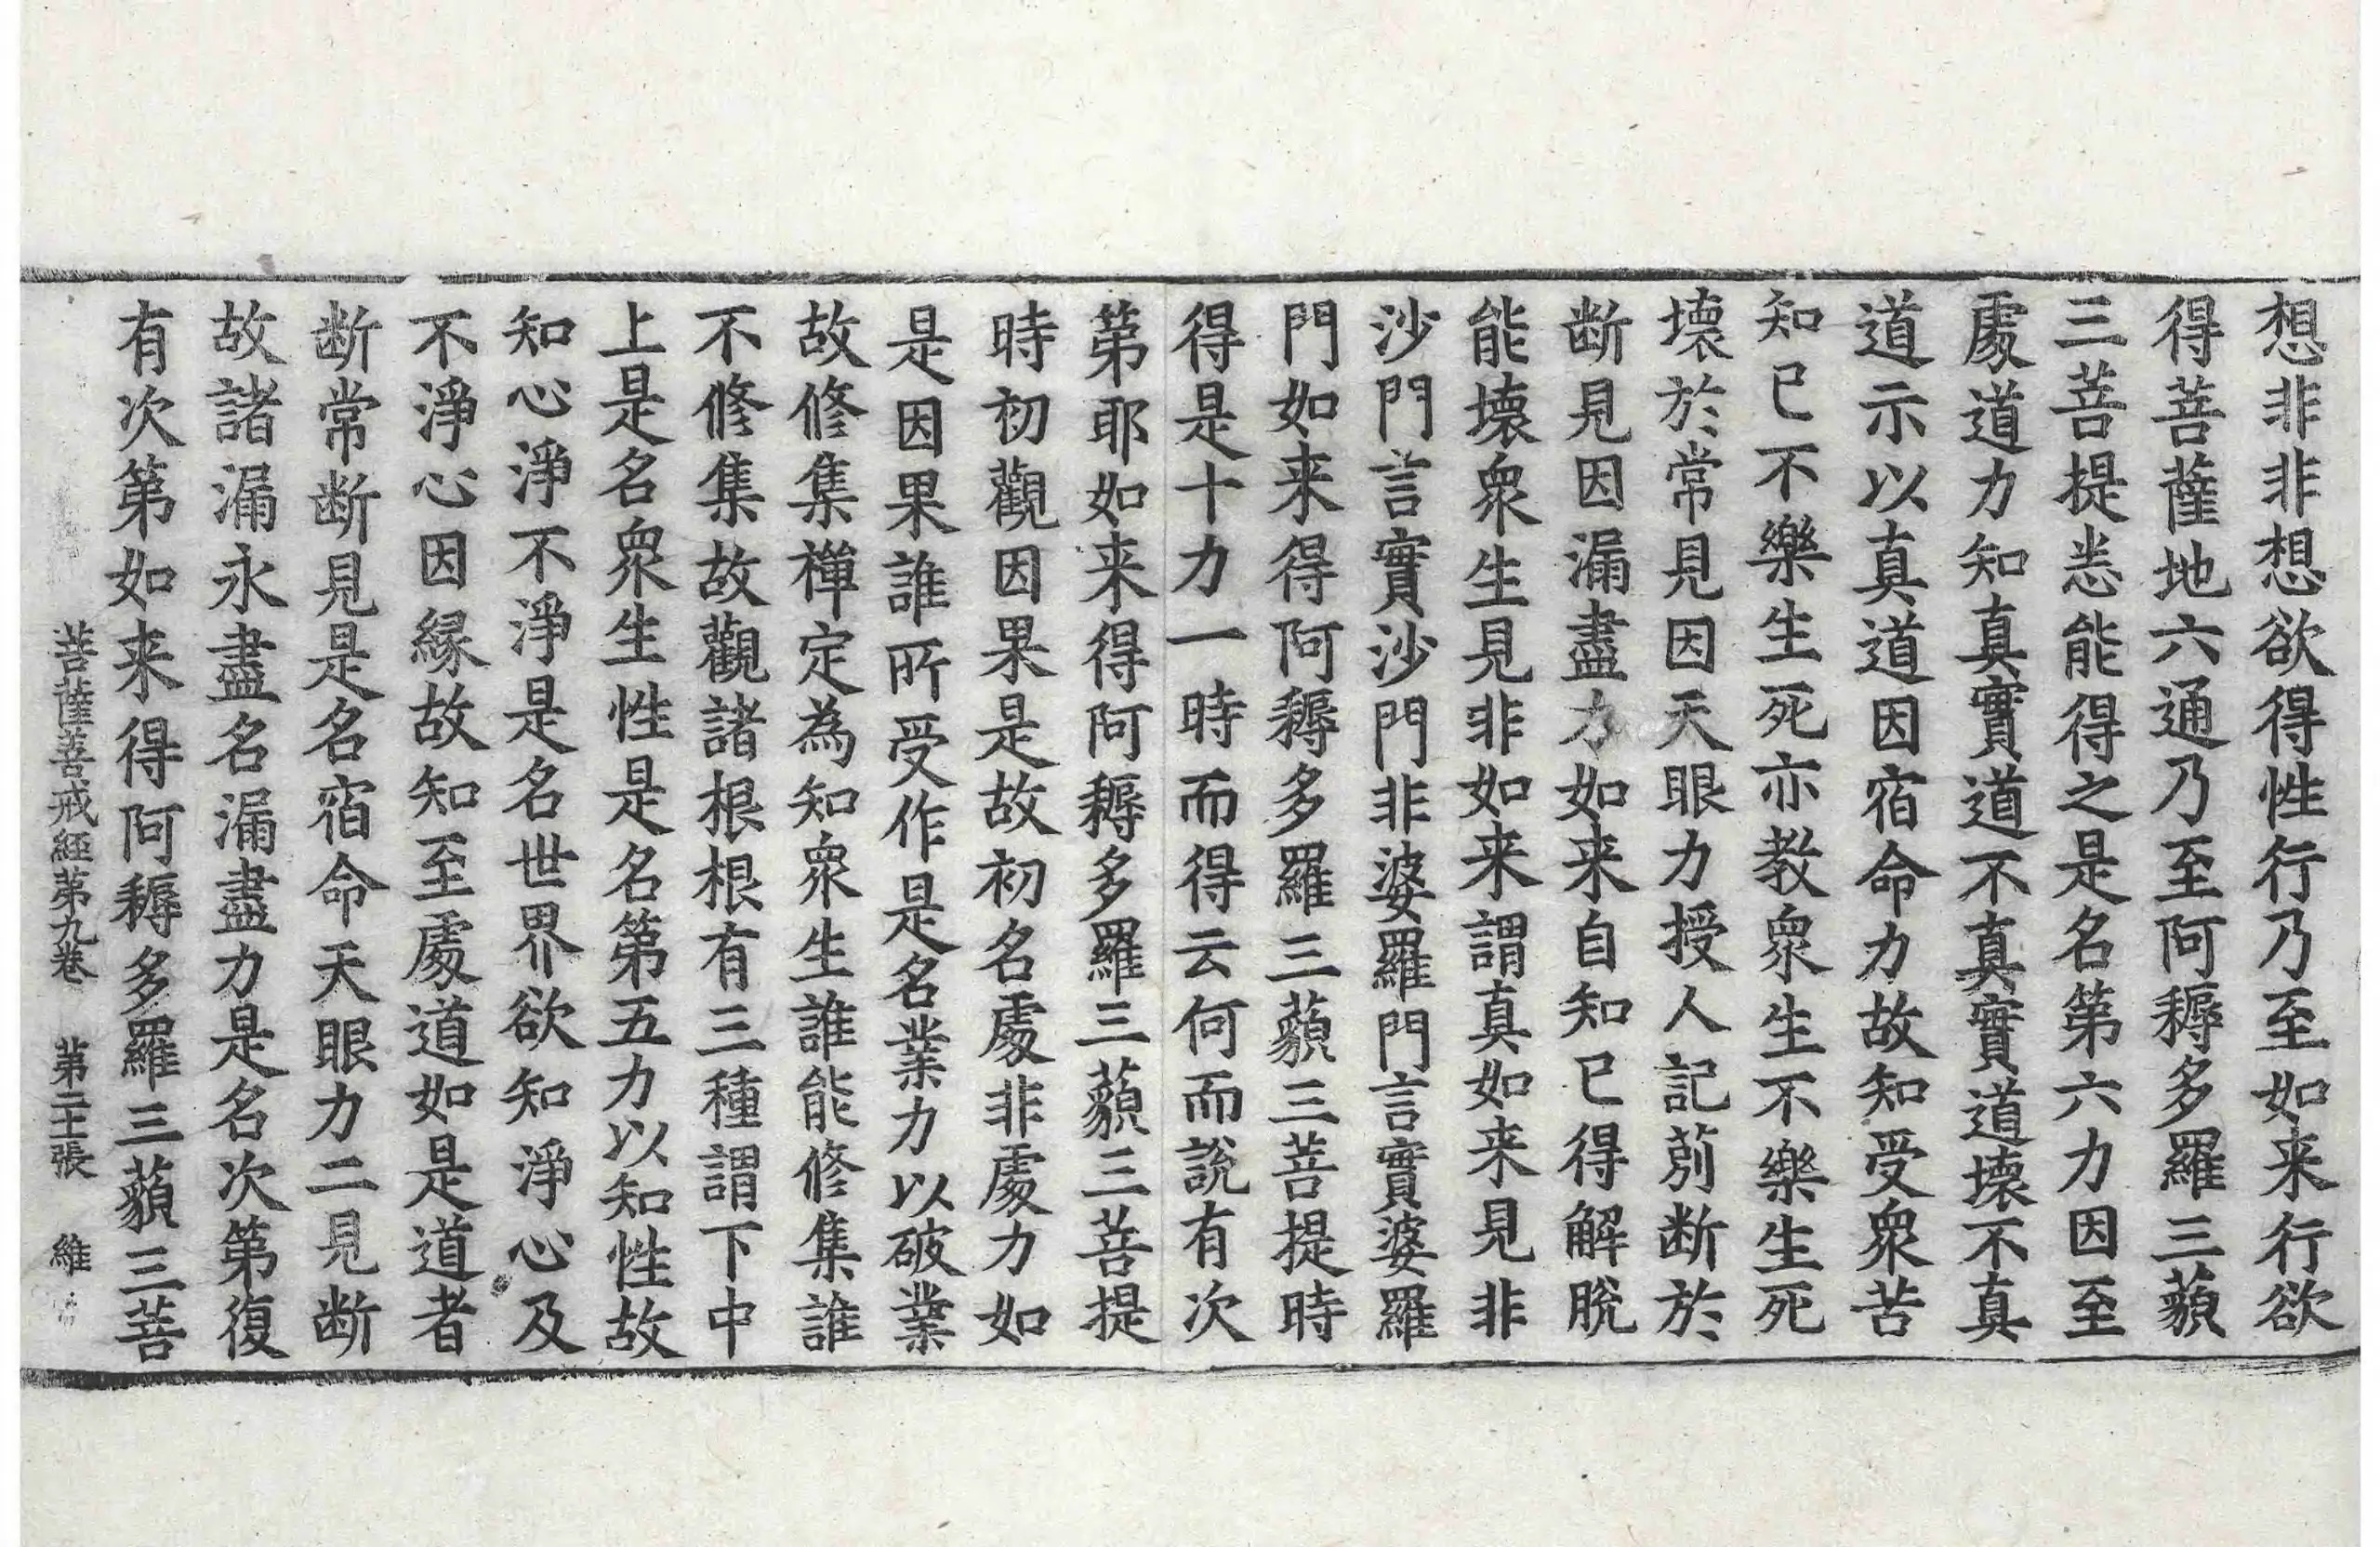 想非非想欲得性行乃至如来行欲
得菩薩地六通乃至阿耨多羅三藐
三菩提悉能得之是名第六力因至
處道力知真實道不真實道壞不真
道示以真道因宿命力故知受衆苦
知已不樂生死亦教衆生不樂生死
壞於常見因天眼力授人記莂断於
断見因漏盡力如来自知已得解脫
能壞衆生見非如来謂真如来見非
沙門言實沙門非婆羅門言實婆羅
門如来得阿耨多羅三藐三菩提時
得是十力一時而得云何而說有次
第耶如来得阿耨多羅三藐三菩提
時初觀因果是故初名處非處力如
是因果誰所受作是名業力以破業
故修集禪定為知衆生誰能修集誰
不修集故觀諸根根有三種謂下中
上是名衆生性是名第五力以知性故
知心淨不淨是名世界欲知淨心及
不淨心因縁故知至處道如是道者
断常断見是名宿命天眼力二見断
故諸漏永盡名漏盡力是名次第復
有次第如来得阿耨多羅三藐三菩
菩薩善戒経第九卷 第二十張 維